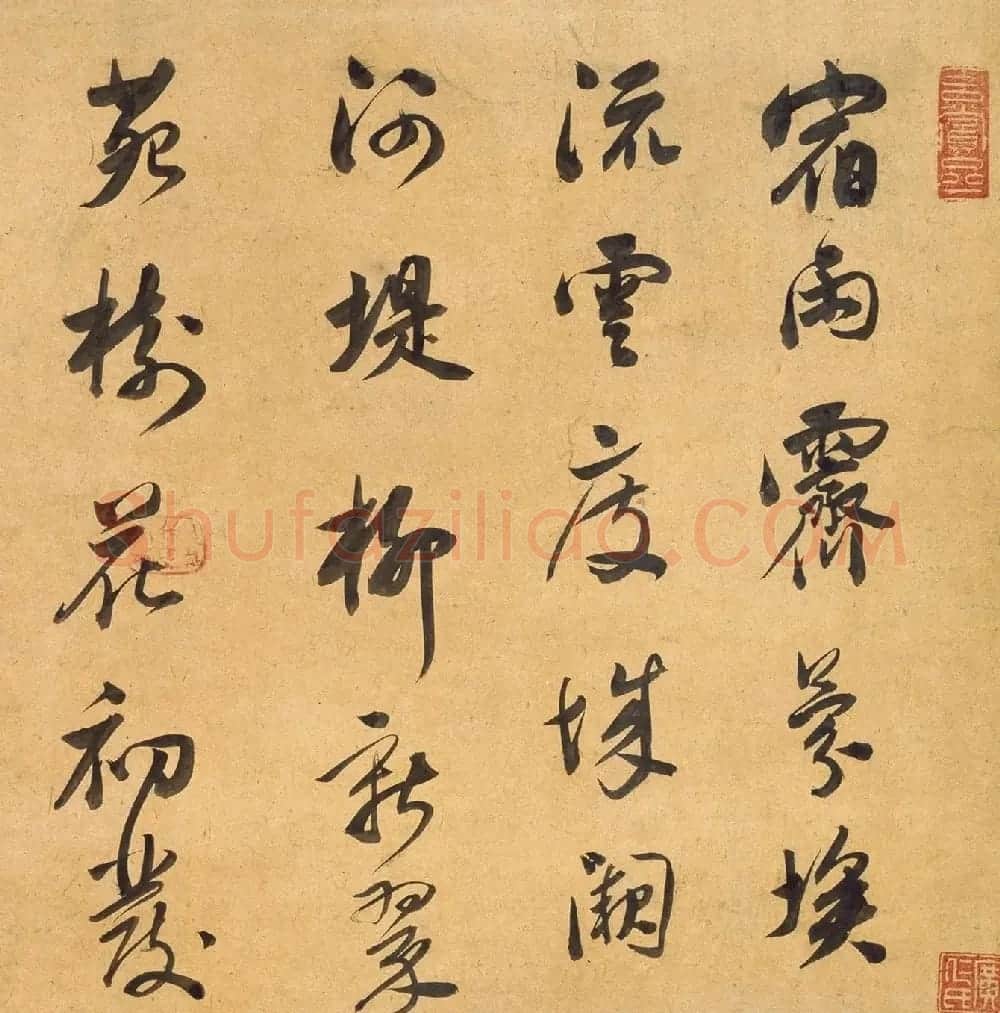 宿雨霽芬埃
流雲度城闕
河堤柳新翠
苑樹花初發
Shufaziliao.COM